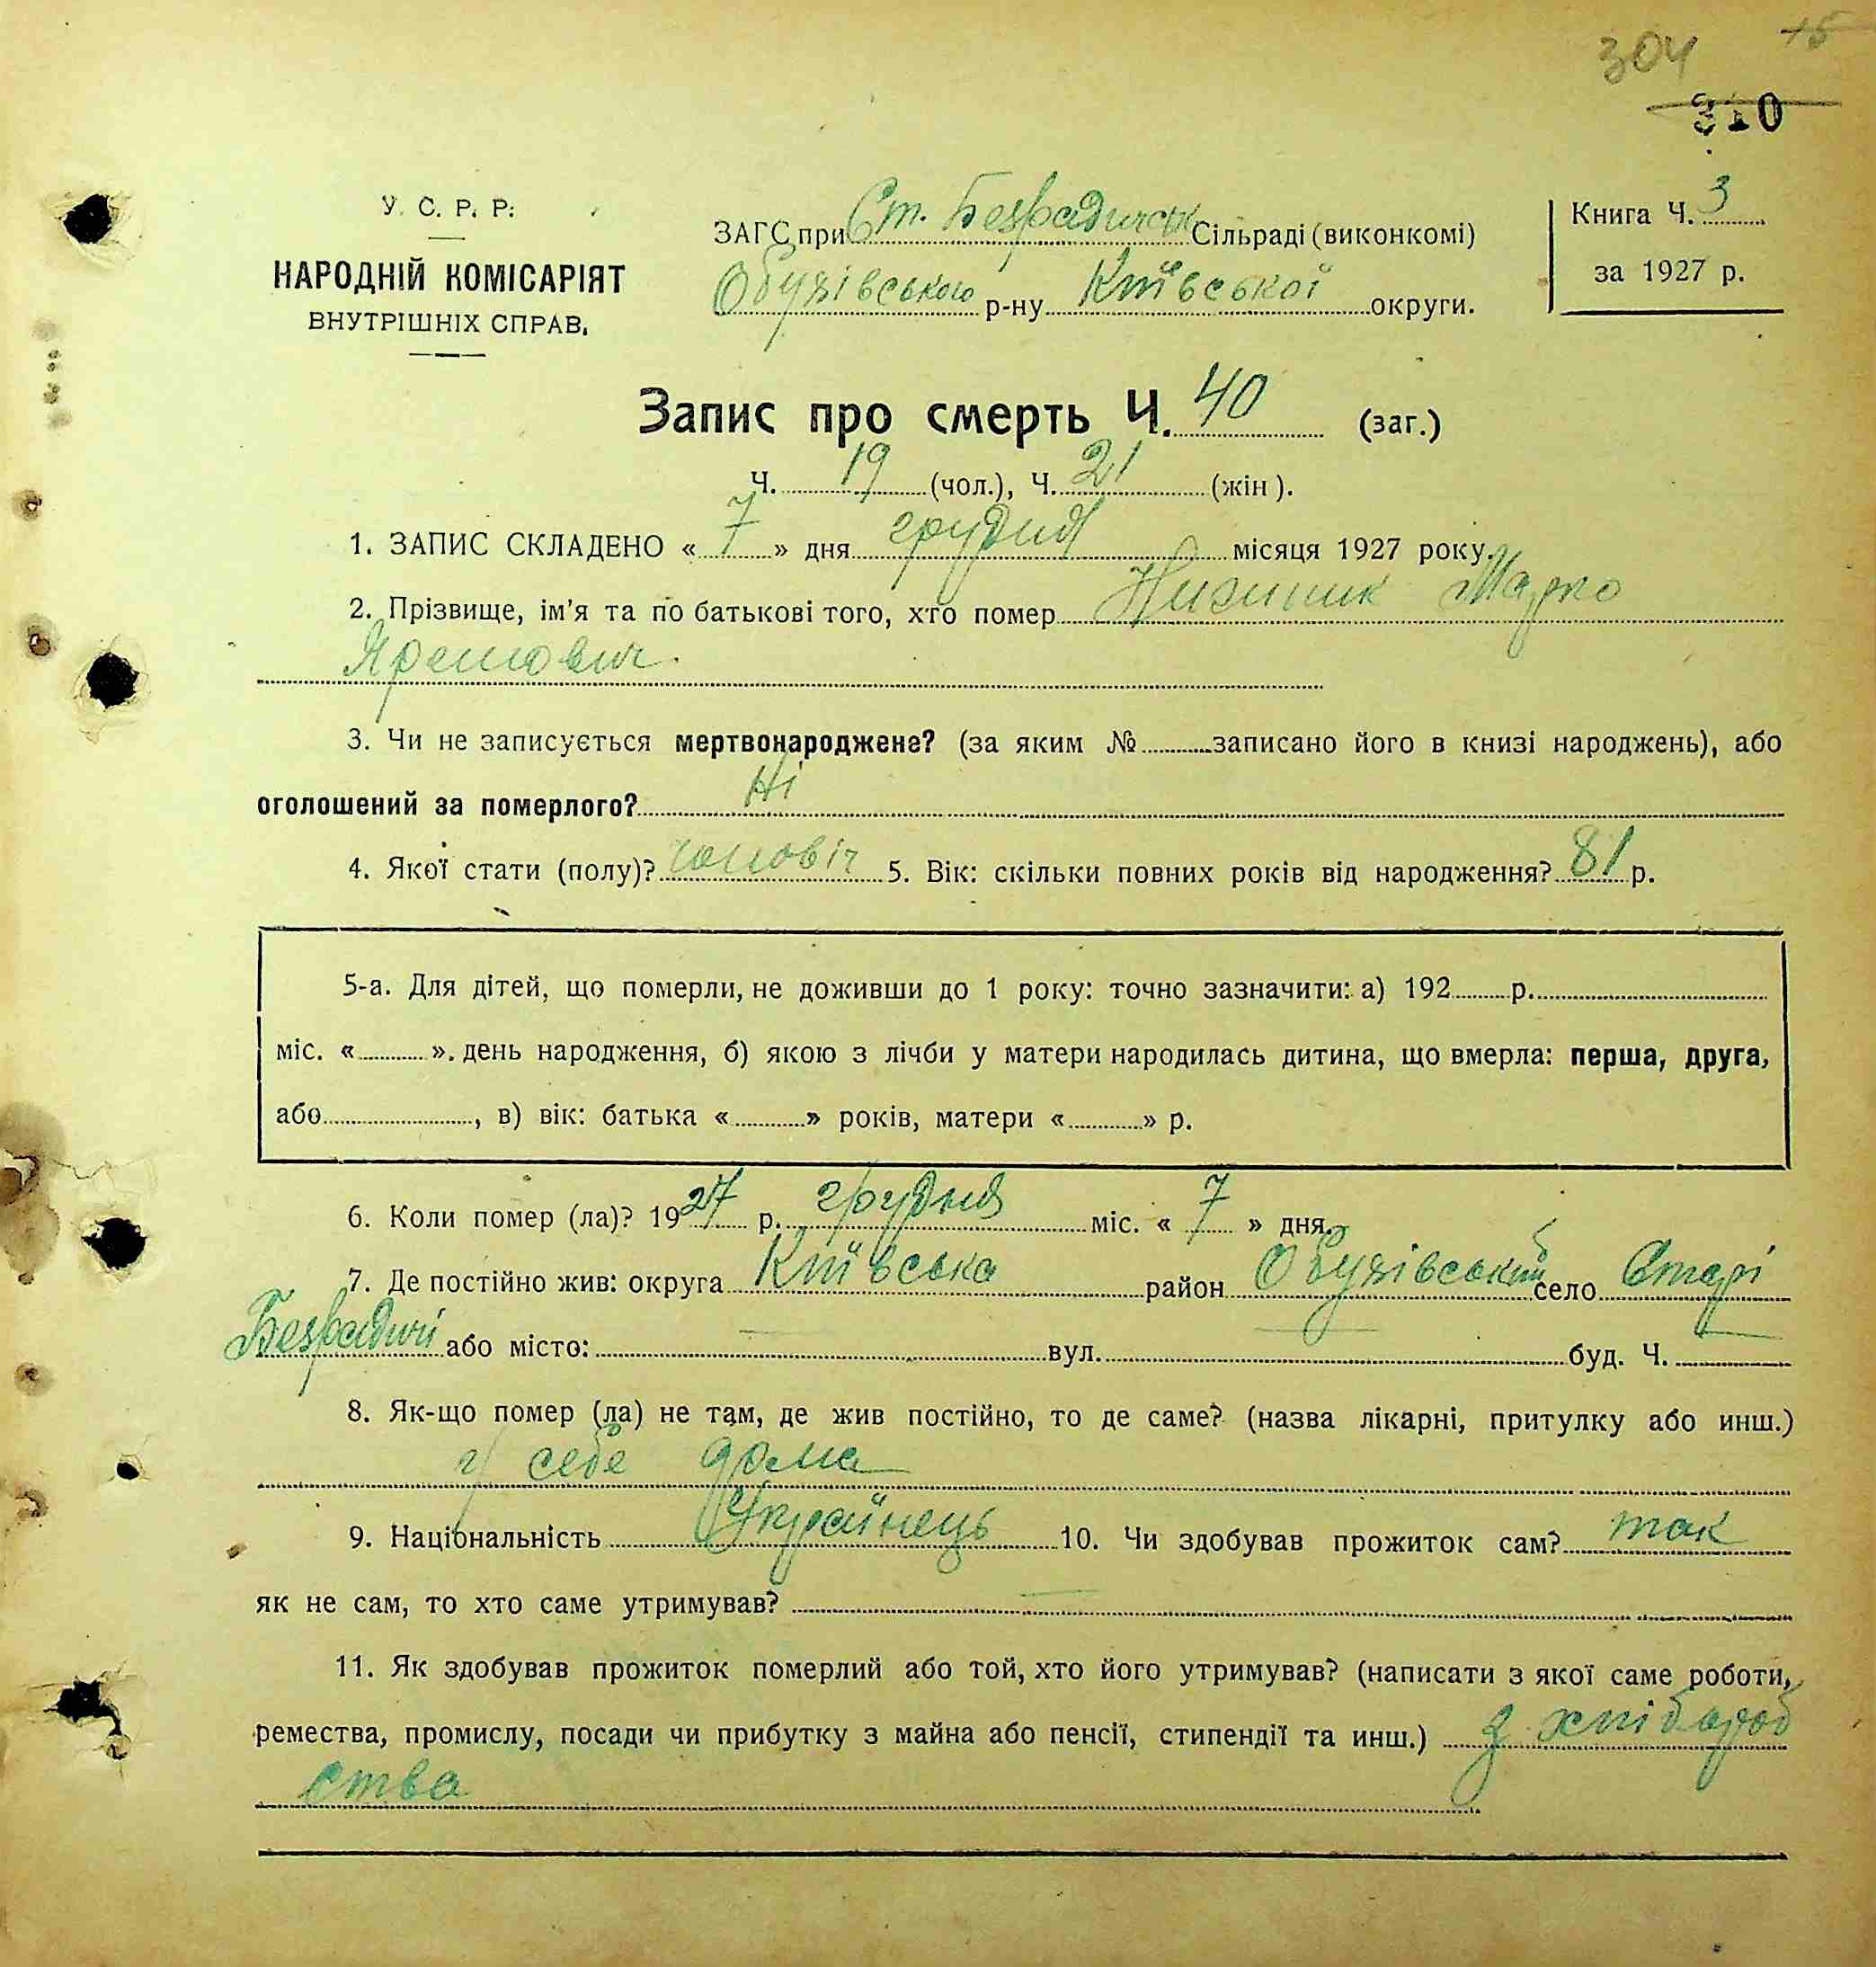 304
310
У. С. Р. Р.
НАРОДНІЙ КОМІСАРІЯТ
ВНУТРІШНІХ СПРАВ.
ЗАГС при Ст. Безрадичськ Сільраді (виконкомі)
Обухівського р-ну Київської округи.
Книга Ч. 3
за 1927 р.
Запис про смерть Ч. 40 (заг.)
Ч. 19 (чол.), Ч. 21 (жін).
1. ЗАПИС СКЛАДЕНО « 7 » дня грудня місяця 1927 року.
2. Прізвище, ім’я та по батькові того, хто помер Марко
3. Чи не записується мертвонароджене? (за яким № записано його в книзі народжень), або
оголошений за померлого? Ні
4. Якої стати (полу)? чоловіч 5. Вік: скільки повних років від народження? 81 р.
5-а. Для дітей, що померли, не доживши до 1 року: точно зазначити: а) 192 р.
міс. « ». день народження, б) якою з лічби у матери народилась дитина, що вмерла: перша, друга,
або , в) вік: батька « » років, матери « » р.
6. Коли помер (ла)? 1927 р. грудня міс. « 7 » дня.
7. Де постійно жив: округа Київська район Обухівський село Старі
Безрадичі або місто: — вул. — буд. Ч. —
8. Як-що помер (ла) не там, де жив постійно, то де саме? (назва лікарні, притулку або инш.)
у себе дома
9. Національність Українець 10. Чи здобував прожиток сам? так
як не сам, то хто саме утримував? —
11. Як здобував прожиток померлий або той, хто його утримував? (написати з якої саме роботи,
ремества, промислу, посади чи прибутку з майна або пенсії, стипендії та инш.) з хлібороб
ства